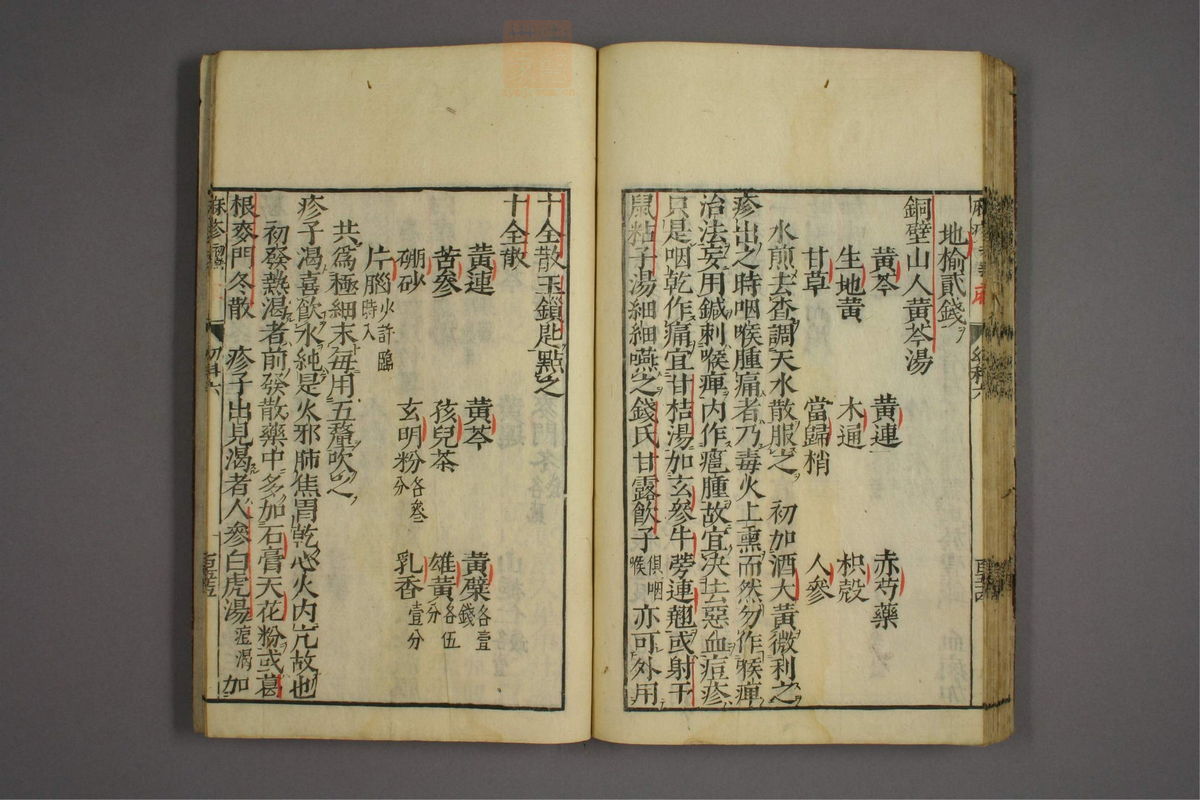 地榆貳錢
銅壁山人黃芩湯
黃芩 黃連 赤芍藥
生地黃 木通 枳殼
甘草 當歸梢 人參
水煎去查調天水散服之 初加酒大黃微利之
疹出之時咽喉腫痛者乃毒火上熏而然勿作喉痺
治法妄用鍼刺喉痺內作癰腫故宜決去惡血痘疹
只是咽乾作痛宜甘桔湯加玄參牛蒡連翹或射干
鼠粘子湯細細嚥之錢氏甘露飲子俱咽喉亦可外用
十全散玉鎖匙點之
十全散
黃連 黃芩 黃蘗各壹錢
苦參 孩兒茶 雄黃各伍分
硼砂 玄明粉各叄分 乳香壹分
片腦少許臨時入
共爲極細末每用五釐吹之
疹子渴喜飲水純是火邪肺焦胃乾心火內亢故也
初發熱渴者前發散藥中多加石膏天花粉或葛
根麥門冬散 疹子出見渴者人參白虎湯痘渴加